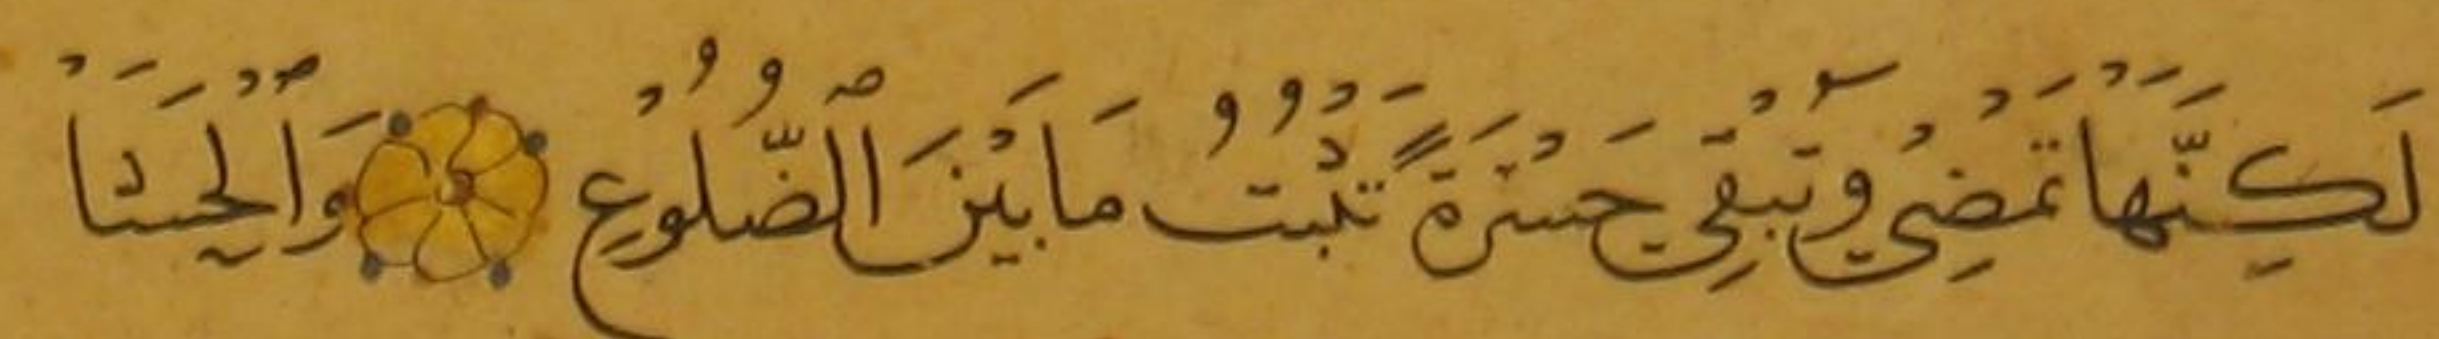 لَكِنَّهَا تَمْضِي وَتُبْقِي حَسْرَةً تَلْبَثُ مَا بَيْنَ ٱلضُّلُوعِ وَٱلْحَشَا